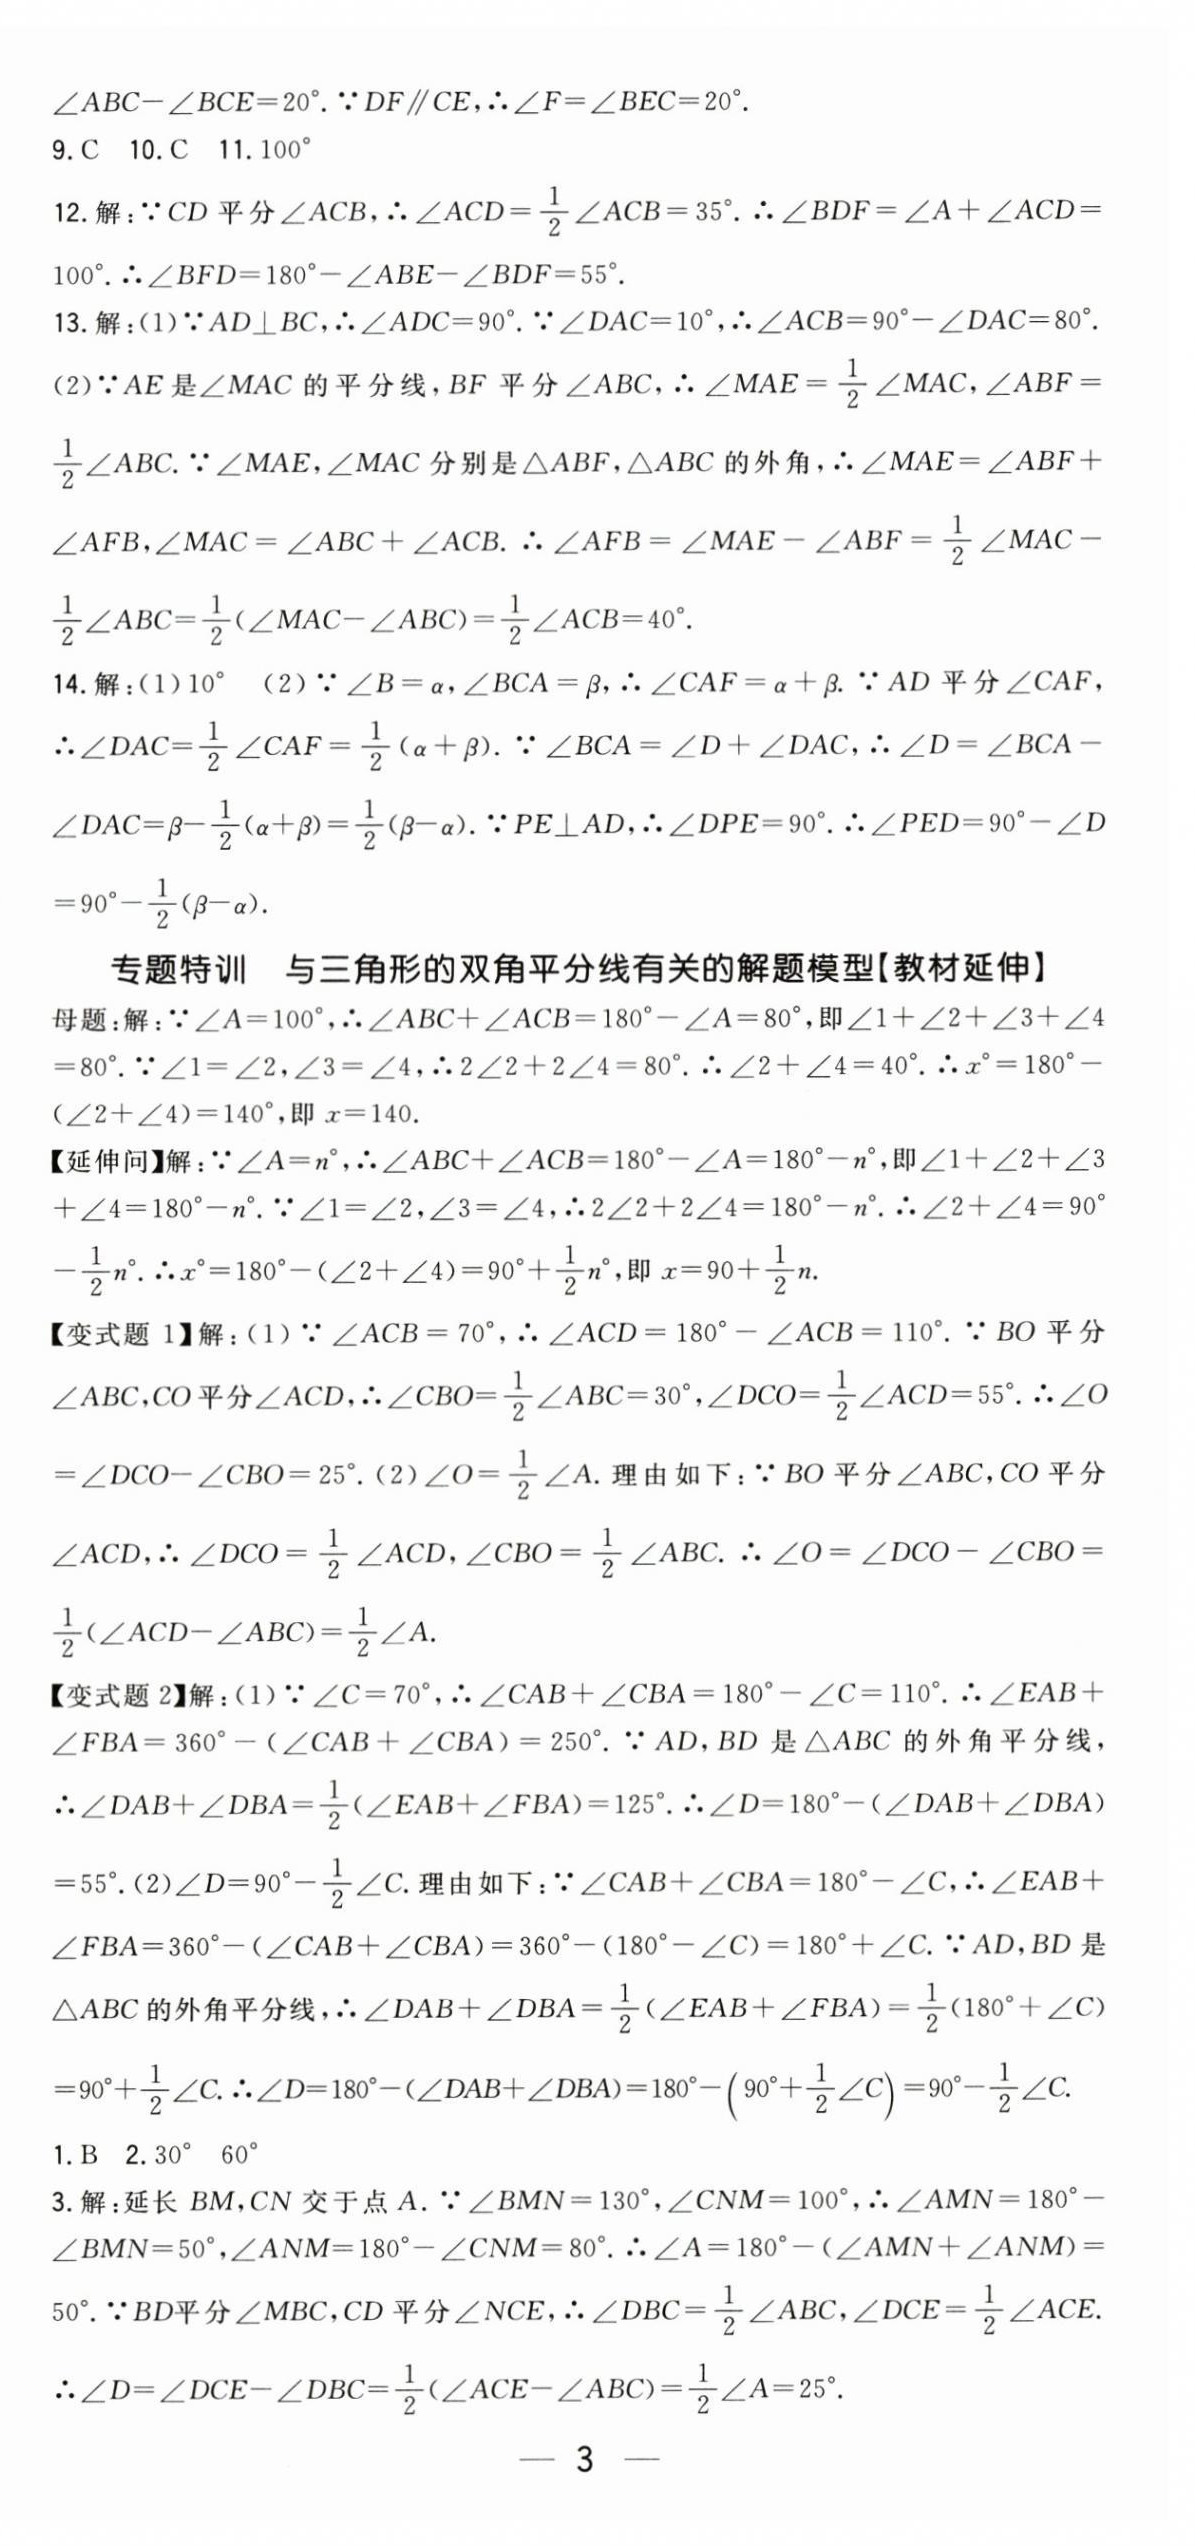 ∠ABC－∠BCE＝20°.∵DF∥CE,∴∠F＝∠BEC＝20°.
9.C 10.C 11.100°
12.解:∵CD 平分∠ACB,∴∠ACD＝1/2∠ACB＝35°.∴∠BDF＝∠A＋∠ACD＝
100°.∴∠BFD＝180°－∠ABE－∠BDF＝55°.
13.解:(1)∵AD⊥BC,∴∠ADC＝90°.∵∠DAC＝10°,∴∠ACB＝90°－∠DAC＝80°.
(2)∵AE 是∠MAC 的平分线,BF 平分∠ABC,∴∠MAE＝1/2∠MAC,∠ABF＝
1/2∠ABC.∵∠MAE,∠MAC 分别是△ABF,△ABC 的外角,∴∠MAE＝∠ABF＋
∠AFB,∠MAC＝∠ABC＋∠ACB.∴∠AFB＝∠MAE－∠ABF＝1/2∠MAC－
1/2∠ABC＝1/2(∠MAC－∠ABC)＝1/2∠ACB＝40°.
14.解:(1)10° (2)∵∠B＝α,∠BCA＝β,∴∠CAF＝α＋β.∵AD 平分∠CAF,
∴∠DAC＝1/2∠CAF＝1/2(α＋β).∵∠BCA＝∠D＋∠DAC,∴∠D＝∠BCA－
∠DAC＝β－1/2(α＋β)＝1/2(β－α).∵PE⊥AD,∴∠DPE＝90°.∴∠PED＝90°－∠D
＝90°－1/2(β－α).
专题特训 与三角形的双角平分线有关的解题模型【教材延伸】
母题:解:∵∠A＝100°,∴∠ABC＋∠ACB＝180°－∠A＝80°,即∠1＋∠2＋∠3＋∠4
＝80°.∵∠1＝∠2,∠3＝∠4,∴2∠2＋2∠4＝80°.∴∠2＋∠4＝40°.∴x°＝180°－
(∠2＋∠4)＝140°,即 x＝140.
【延伸问】解:∵∠A＝n°,∴∠ABC＋∠ACB＝180°－∠A＝180°－n°,即∠1＋∠2＋∠3
＋∠4＝180°－n°.∵∠1＝∠2,∠3＝∠4,∴2∠2＋2∠4＝180°－n°.∴∠2＋∠4＝90°
－1/2n°.∴x°＝180°－(∠2＋∠4)＝90°＋1/2n°,即 x＝90＋1/2n.
【变式题 1】解:(1)∵∠ACB＝70°,∴∠ACD＝180°－∠ACB＝110°.∵BO 平分
∠ABC,CO 平分∠ACD,∴∠CBO＝1/2∠ABC＝30°,∠DCO＝1/2∠ACD＝55°.∴∠O
＝∠DCO－∠CBO＝25°.(2)∠O＝1/2∠A.理由如下:∵BO 平分∠ABC,CO 平分
∠ACD,∴∠DCO＝1/2∠ACD,∠CBO＝1/2∠ABC.∴∠O＝∠DCO－∠CBO＝
1/2(∠ACD－∠ABC)＝1/2∠A.
【变式题 2】解:(1)∵∠C＝70°,∴∠CAB＋∠CBA＝180°－∠C＝110°.∴∠EAB＋
∠FBA＝360°－(∠CAB＋∠CBA)＝250°.∵AD,BD 是△ABC 的外角平分线,
∴∠DAB＋∠DBA＝1/2(∠EAB＋∠FBA)＝125°.∴∠D＝180°－(∠DAB＋∠DBA)
＝55°.(2)∠D＝90°－1/2∠C.理由如下:∵∠CAB＋∠CBA＝180°－∠C,∴∠EAB＋
∠FBA＝360°－(∠CAB＋∠CBA)＝360°－(180°－∠C)＝180°＋∠C.∵AD,BD 是
△ABC 的外角平分线,∴∠DAB＋∠DBA＝1/2(∠EAB＋∠FBA)＝1/2(180°＋∠C)
＝90°＋1/2∠C.∴∠D＝180°－(∠DAB＋∠DBA)＝180°－(90°＋1/2∠C)＝90°－1/2∠C.
1.B 2.30° 60°
3.解:延长 BM,CN 交于点 A.∵∠BMN＝130°,∠CNM＝100°,∴∠AMN＝180°－
∠BMN＝50°,∠ANM＝180°－∠CNM＝80°.∴∠A＝180°－(∠AMN＋∠ANM)＝
50°.∵BD平分∠MBC,CD 平分∠NCE,∴∠DBC＝1/2∠ABC,∠DCE＝1/2∠ACE.
∴∠D＝∠DCE－∠DBC＝1/2(∠ACE－∠ABC)＝1/2∠A＝25°.
— 3 —